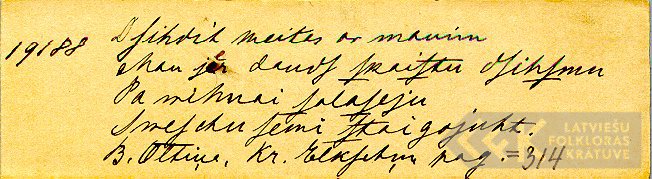 19188 Dsihdit meitas ar mannim
Man jau daudf skaistu dsihsmu
Pa weenai salaseju
Sweschu semi staigajuht.
B. Ottiņa, Kr. Elkschņu pag. = 314
LATVIEŠU
FOLKLORAS
KRĀTUVE